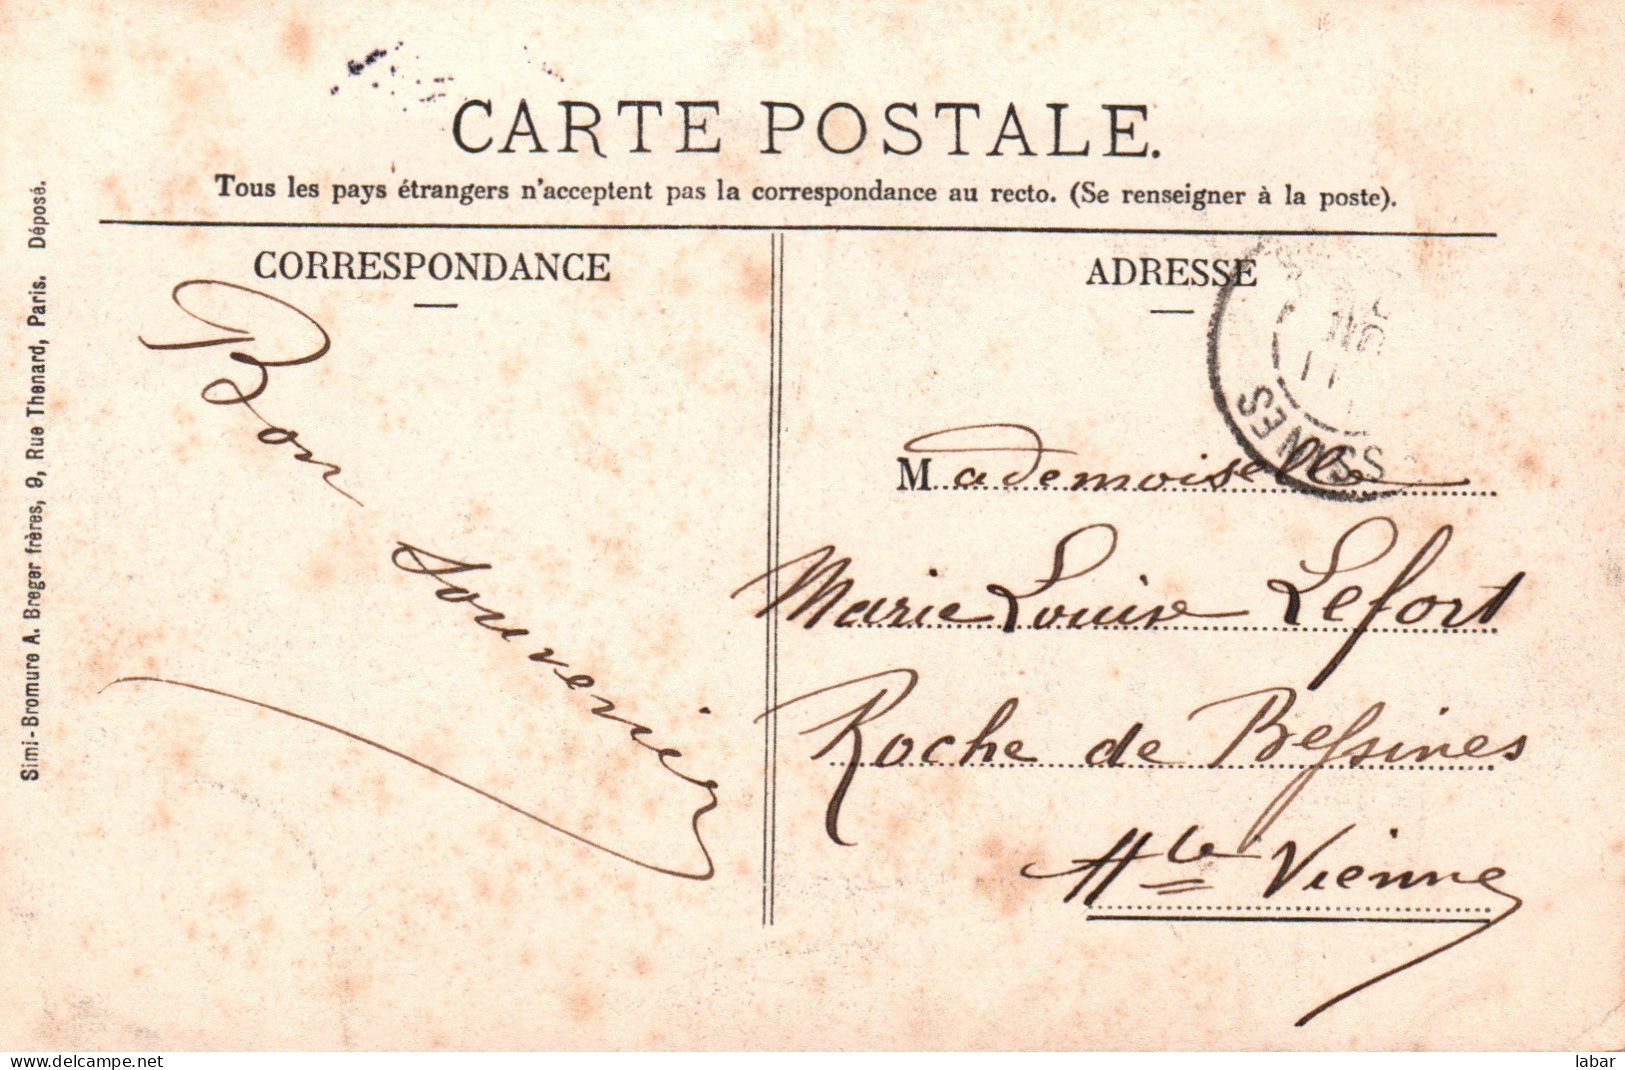 CARTE POSTALE.
Tous les pays étrangers n'acceptent pas la correspondance au recto. (Se renseigner à la poste).
Simi-Bromure A. Breger frères, 9, Rue Thenard, Paris. Déposé.
CORRESPONDANCE
Bon
souvenir
ADRESSE
Mademoiselle
Marie Louise Lefort
Roche de Bessines
Hte Vienne
delcampe.net
labar